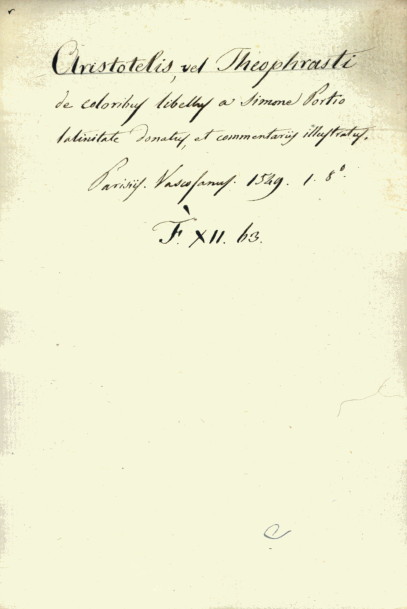 Aristotelis, vel Theophrasti
de coloribus libellus a Simone Portio
latinitate donatus, et commentariis illustratus.
Parisiis. Vascosanus. 1549. 1. 8°.
F. XII. 63.